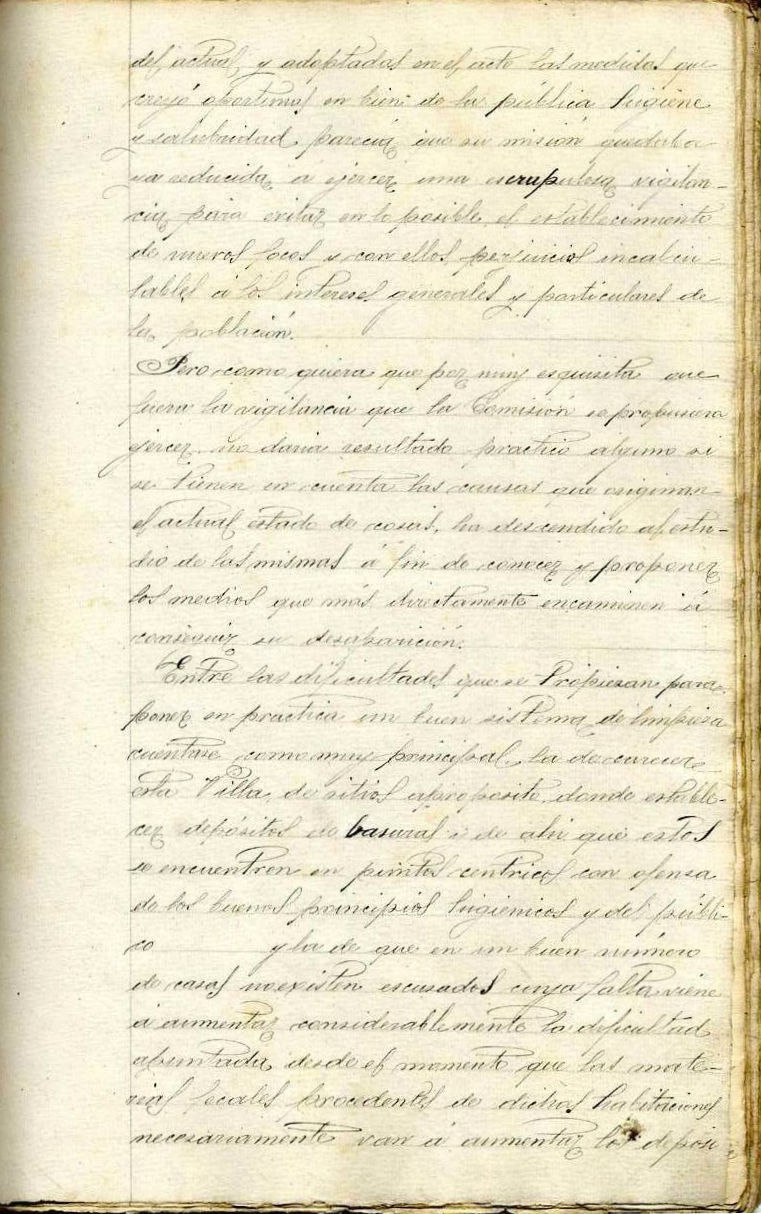 del actual, y adoptadas en el acto las medidas que
creyó oportunas en bien de la pública higiene
y salubridad, parecia que su misión quedaba
ya reducida a ejercer una escrupulosa vigilan-
cia para evitar en lo posible el establecimiento
de nuevos focos y con ellos perjuicios incalcu-
lables á los intereses generales y particulares de
la población.
Pero como quiera que por muy esquisita que
fuera la vigilancia que la Comisión se propusiera
ejercer no daria resultado practico alguno si
se tienen en cuenta las causas que originan
el actual estado de cosas, ha descendido al estu-
dio de las mismas á fin de conocer y proponer
los medios que más directamente encaminen á
conseguir su desaparición.
Entre las dificultades que se tropiezan para
poner en practica un buen sistema de limpieza
cuentase como muy principal, la de carecer
esta Villa de sitios aproposito donde estable-
cer depósitos de basuras i de ahi que estos
se encuentren en puntos centricos con ofensa
de los buenos principios higienicos y del públi-
co y la de que en un buen número
de casas no existen escusados cuya falta viene
á aumentar considerablemente la dificultad
apuntada, desde el momento que las mate-
rias fecales procedentes de dichas habitaciones
necesariamente van á aumentar los deposi